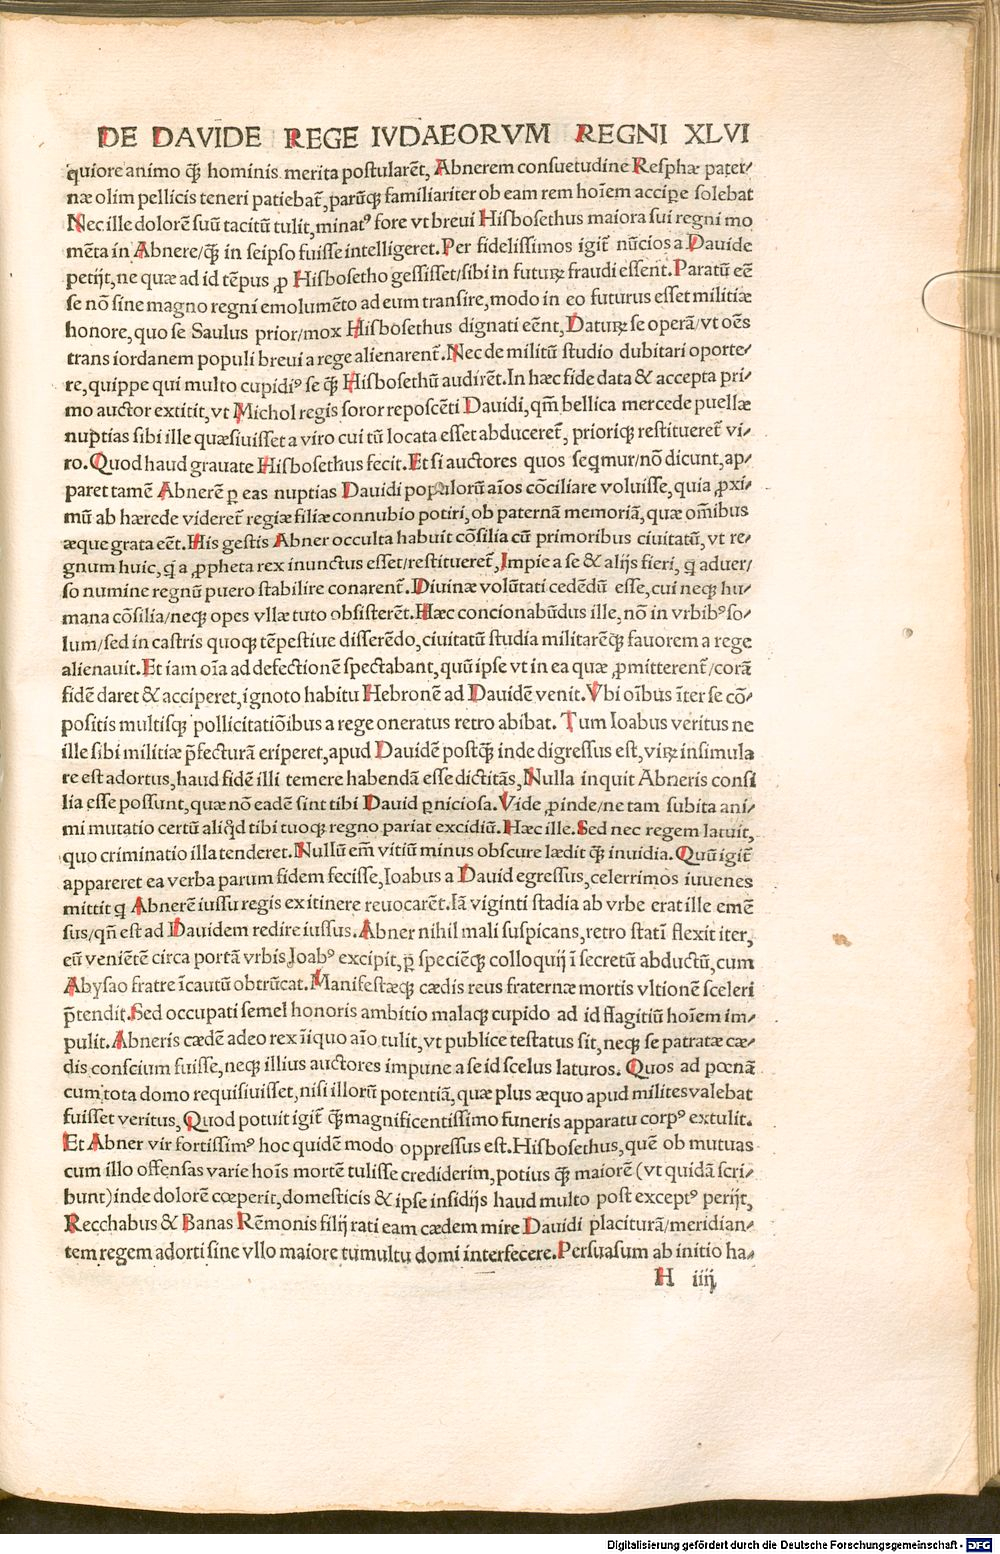 DE DAVIDE REGE IVDAEORVM REGNI XLVI
quiore animo q̃ꝫ hominis merita postularẽt, Abnerem consuetudine Resphæ pater-
næ olim pellicis teneri patiebat̃, parũqꝫ familiariter ob eam rem hoĩem accipe solebat
Nec ille dolorẽ suũ tacitũ tulit, minatꝰ fore vt breui Hisbosethus maiora sui regni mo
mẽta in Abnere/q̃ꝫ in seipso fuisse intelligeret. Per fidelissimos igit̃ nũcios a Dauide
petijt, ne quæ ad id tẽpus ꝓ Hisbosetho gessisset/sibi in futuꝝ fraudi essent. Paratũ eẽ
se nõ sine magno regni emolumẽto ad eum transire, modo in eo futurus esset militiæ
honore, quo se Saulus prior/mox Hisbosethus dignati eẽnt, Datuꝝ se operã/vt oẽs
trans iordanem populi breui a rege alienarent̃. Nec de militũ studio dubitari oporte-
re, quippe qui multo cupidiꝰ se q̃ꝫ Hisbosethũ audirẽt. In hæc fide data & accepta pri-
mo auctor extitit, vt Michol regis soror reposcẽti Dauidi, qm̃ bellica mercede puellæ
nuptias sibi ille quæsiuisset a viro cui tũ locata esset abduceret̃, prioriqꝫ restitueret̃ vi-
ro. Quod haud grauate Hisbosethus fecit. Et si auctores quos seq̃mur/nõ dicunt, ap-
paret tamẽ Abnerẽ ꝑ eas nuptias Dauidi populorũ aĩos cõciliare voluisse, quia ꝓxi-
mũ ab hærede videret̃ regiæ filiæ connubio potiri, ob paternã memoriã, quæ om̃ibus
æque grata eẽt. His gestis Abner occulta habuit cõsilia cũ primoribus ciuitatũ, vt re-
gnum huic, q̃ a ꝓpheta rex inunctus esset/restitueret̃, Impie a se & alijs fieri, q̃ aduer/
so numine regnũ puero stabilire conarent̃. Diuinæ volũtati cedẽdũ esse, cui neqꝫ hu-
mana cõsilia/neqꝫ opes vllæ tuto obsisterẽt. Hæc concionabũdus ille, nõ in vrbibꝰ so-
lum/sed in castris quoqꝫ tẽpestiue disserẽdo, ciuitatũ studia militarẽqꝫ fauorem a rege
alienauit. Et iam oĩa ad defectionẽ spectabant, quũ ipse vt in ea quæ ꝓmitterent̃/corã
fidẽ daret & acciperet, ignoto habitu Hebronẽ ad Dauidẽ venit. Vbi oĩbus ĩter se cõ-
positis multisqꝫ pollicitatiõibus a rege oneratus retro abibat. Tum Ioabus veritus ne
ille sibi militiæ p̃fecturã eriperet, apud Dauidẽ postq̃ꝫ inde digressus est, viꝝ insimula
re est adortus, haud fidẽ illi temere habendã esse dictitãs, Nulla inquit Abneris consi
lia esse possunt, quæ nõ eadẽ sint tibi Dauid ꝑniciosa. Vide ꝓinde/ne tam subita ani-
mi mutatio certũ aliq̃d tibi tuoqꝫ regno pariat excidiũ. Hæc ille. Sed nec regem latuit,
quo criminatio illa tenderet. Nullũ em̃ vitiũ minus obscure lædit q̃ꝫ inuidia. Quũ igit̃
appareret ea verba parum fidem fecisse, Ioabus a Dauid egressus, celerrimos iuuenes
mittit q̃ Abnerẽ iussu regis ex itinere reuocarẽt. Iã viginti stadia ab vrbe erat ille emẽ
sus/qñ est ad Dauidem redire iussus. Abner nihil mali suspicans, retro statĩ flexit iter,
eũ veniẽtẽ circa portã vrbis Ioabꝰ excipit, ꝑ speciẽqꝫ colloquij ĩ secretũ abductũ, cum
Abysao fratre ĩcautũ obtrũcat. Manifestæqꝫ cædis reus fraternæ mortis vltionẽ sceleri
p̃tendit. Sed occupati semel honoris ambitio malaqꝫ cupido ad id flagitiũ hoĩem im-
pulit. Abneris cædẽ adeo rex ĩiquo aĩo tulit, vt publice testatus sit, neqꝫ se patratæ cæ-
dis conscium fuisse, neqꝫ illius auctores impune a se id scelus laturos. Quos ad pœnã
cum tota domo requisiuisset, nisi illorũ potentiã, quæ plus æquo apud milites valebat
fuisset veritus, Quod potuit igit̃ q̃ꝫ magnificentissimo funeris apparatu corpꝰ extulit.
Et Abner vir fortissimꝰ hoc quidẽ modo oppressus est. Hisbosethus, quẽ ob mutuas
cum illo offensas varie hoĩs mortẽ tulisse crediderim, potius q̃ꝫ maiorẽ (vt quidã scri-
bunt) inde dolorẽ cœperit, domesticis & ipse insidijs haud multo post exceptꝰ perijt,
Recchabus & Banas Rẽmonis filij rati eam cædem mire Dauidi placiturã/meridian-
tem regem adorti sine vllo maiore tumultu domi interfecere. Persuasum ab initio ha-
H iiij
Digitalisierung gefördert durch die Deutsche Forschungsgemeinschaft - DFG